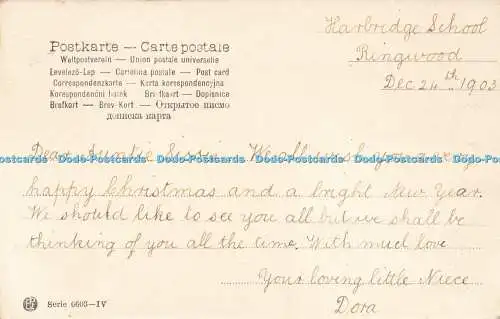 Harbridge School
Ringwood
Dec 24th 1903
Postkarte — Carte postale
Weltpostverein — Union postale universelle
Levelező-Lap — Cartolina postale — Post card
Correspondenzkarte — Karta korrespondencyjna
Korespondenční lístek Briefkaart — Dopisnice
Brefkort — Brev-Kort — Открытое письмо
дописна карта
Dear Auntie Sissie. We all wish you a very
Dodo-Postcards Dodo-Postcards Dodo-Postcards Dodo-Postcards Dodo-Postcards Dodo-Postcards
happy Christmas and a bright New Year.
We should like to see you all but we shall be
thinking of you all the time. With much love
Your loving little Niece
Dora
Serie 6603—IV